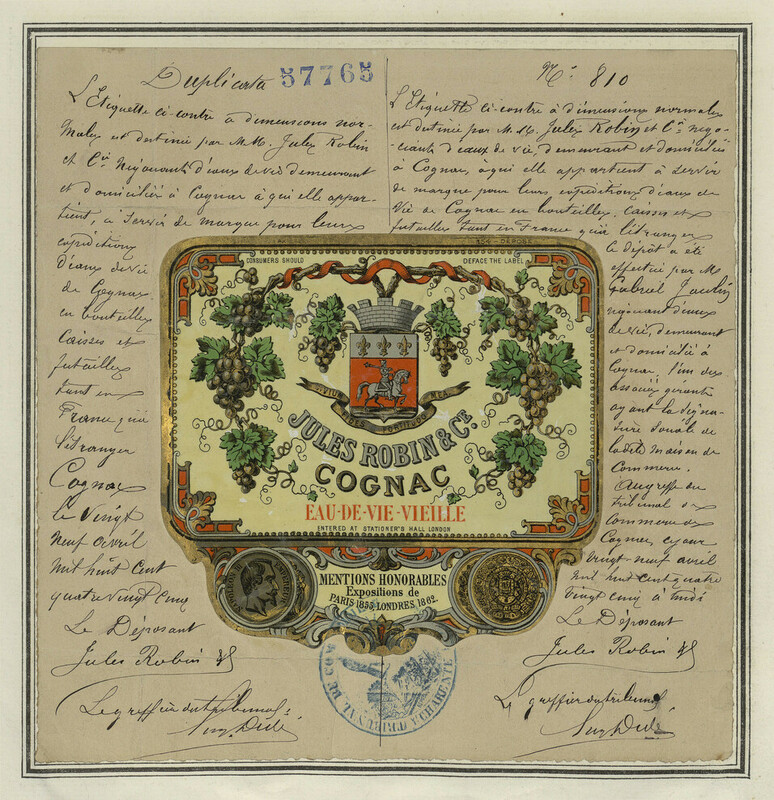 Duplicata 57765
L'Etiquette ci-contre a dimensions nor-
males est destinée par M.M. Jules Robin
et Cie Négociants d'eaux de vie demeurant
et domiciliés à Cognac à qui elle appar-
tient, à servir de marque pour leurs
expéditions
d'eaux de vie
de Cognac
en bouteilles
caisses et
futailles
tant en
France qu'à
l'étranger
Cognac
le vingt
neuf avril
mil huit cent
quatre vingt cinq
Le Déposant
Jules Robin &
Le greffier du tribunal
N° 810
L'Etiquette ci-contre à dimensions normales
est destinée par M.M. Jules Robin et Cie négo-
ciants d'eaux de vie, demeurant et domiciliés
à Cognac, à qui elle appartient à servir
de marque pour leurs expéditions d'eaux de
Vie de Cognac en bouteilles, caisses et
futailles tant en France qu'à l'étranger
le dépôt a été
effectué par M
Gabriel
négociant d'eaux
de vie, demeurant
et domicilié à
Cognac, l'un des
associés gérants
ayant la signa-
ture sociale de
la dite maison de
Commerce.
Au greffe du
tribunal de
commerce de
Cognac, ce jour
vingt-neuf avril
mil huit cent quatre
vingt cinq à midi
Le Déposant
Jules Robin &
Le greffier du tribunal
CONSUMERS SHOULD DEFACE THE LABEL
JULES ROBIN & Ce
COGNAC
EAU-DE-VIE-VIEILLE
ENTERED AT STATIONER'S HALL LONDON
NAPOLEON III EMPEREUR
MENTIONS HONORABLES
Expositions de
PARIS 1855 LONDRES 1862.